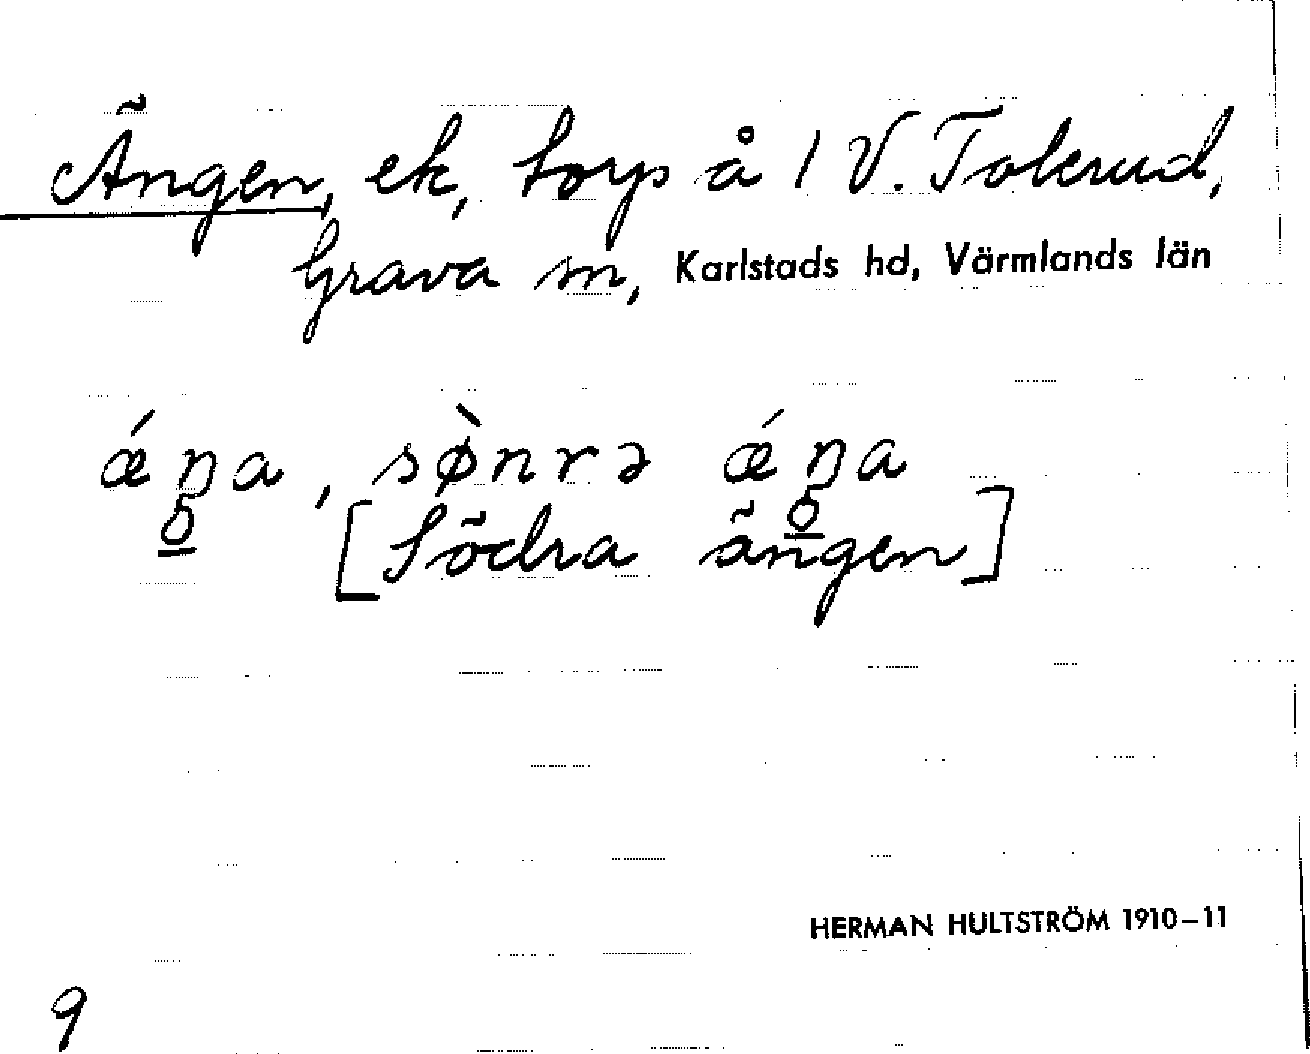 Ängen, ek, torp å 1 V. Tolerud,
Grava sn, Karlstads hd, Värmlands län
ǽŋa, sø̀nrə ǽŋa
[Södra ängen]
HERMAN HULTSTRÖM 1910–11
9